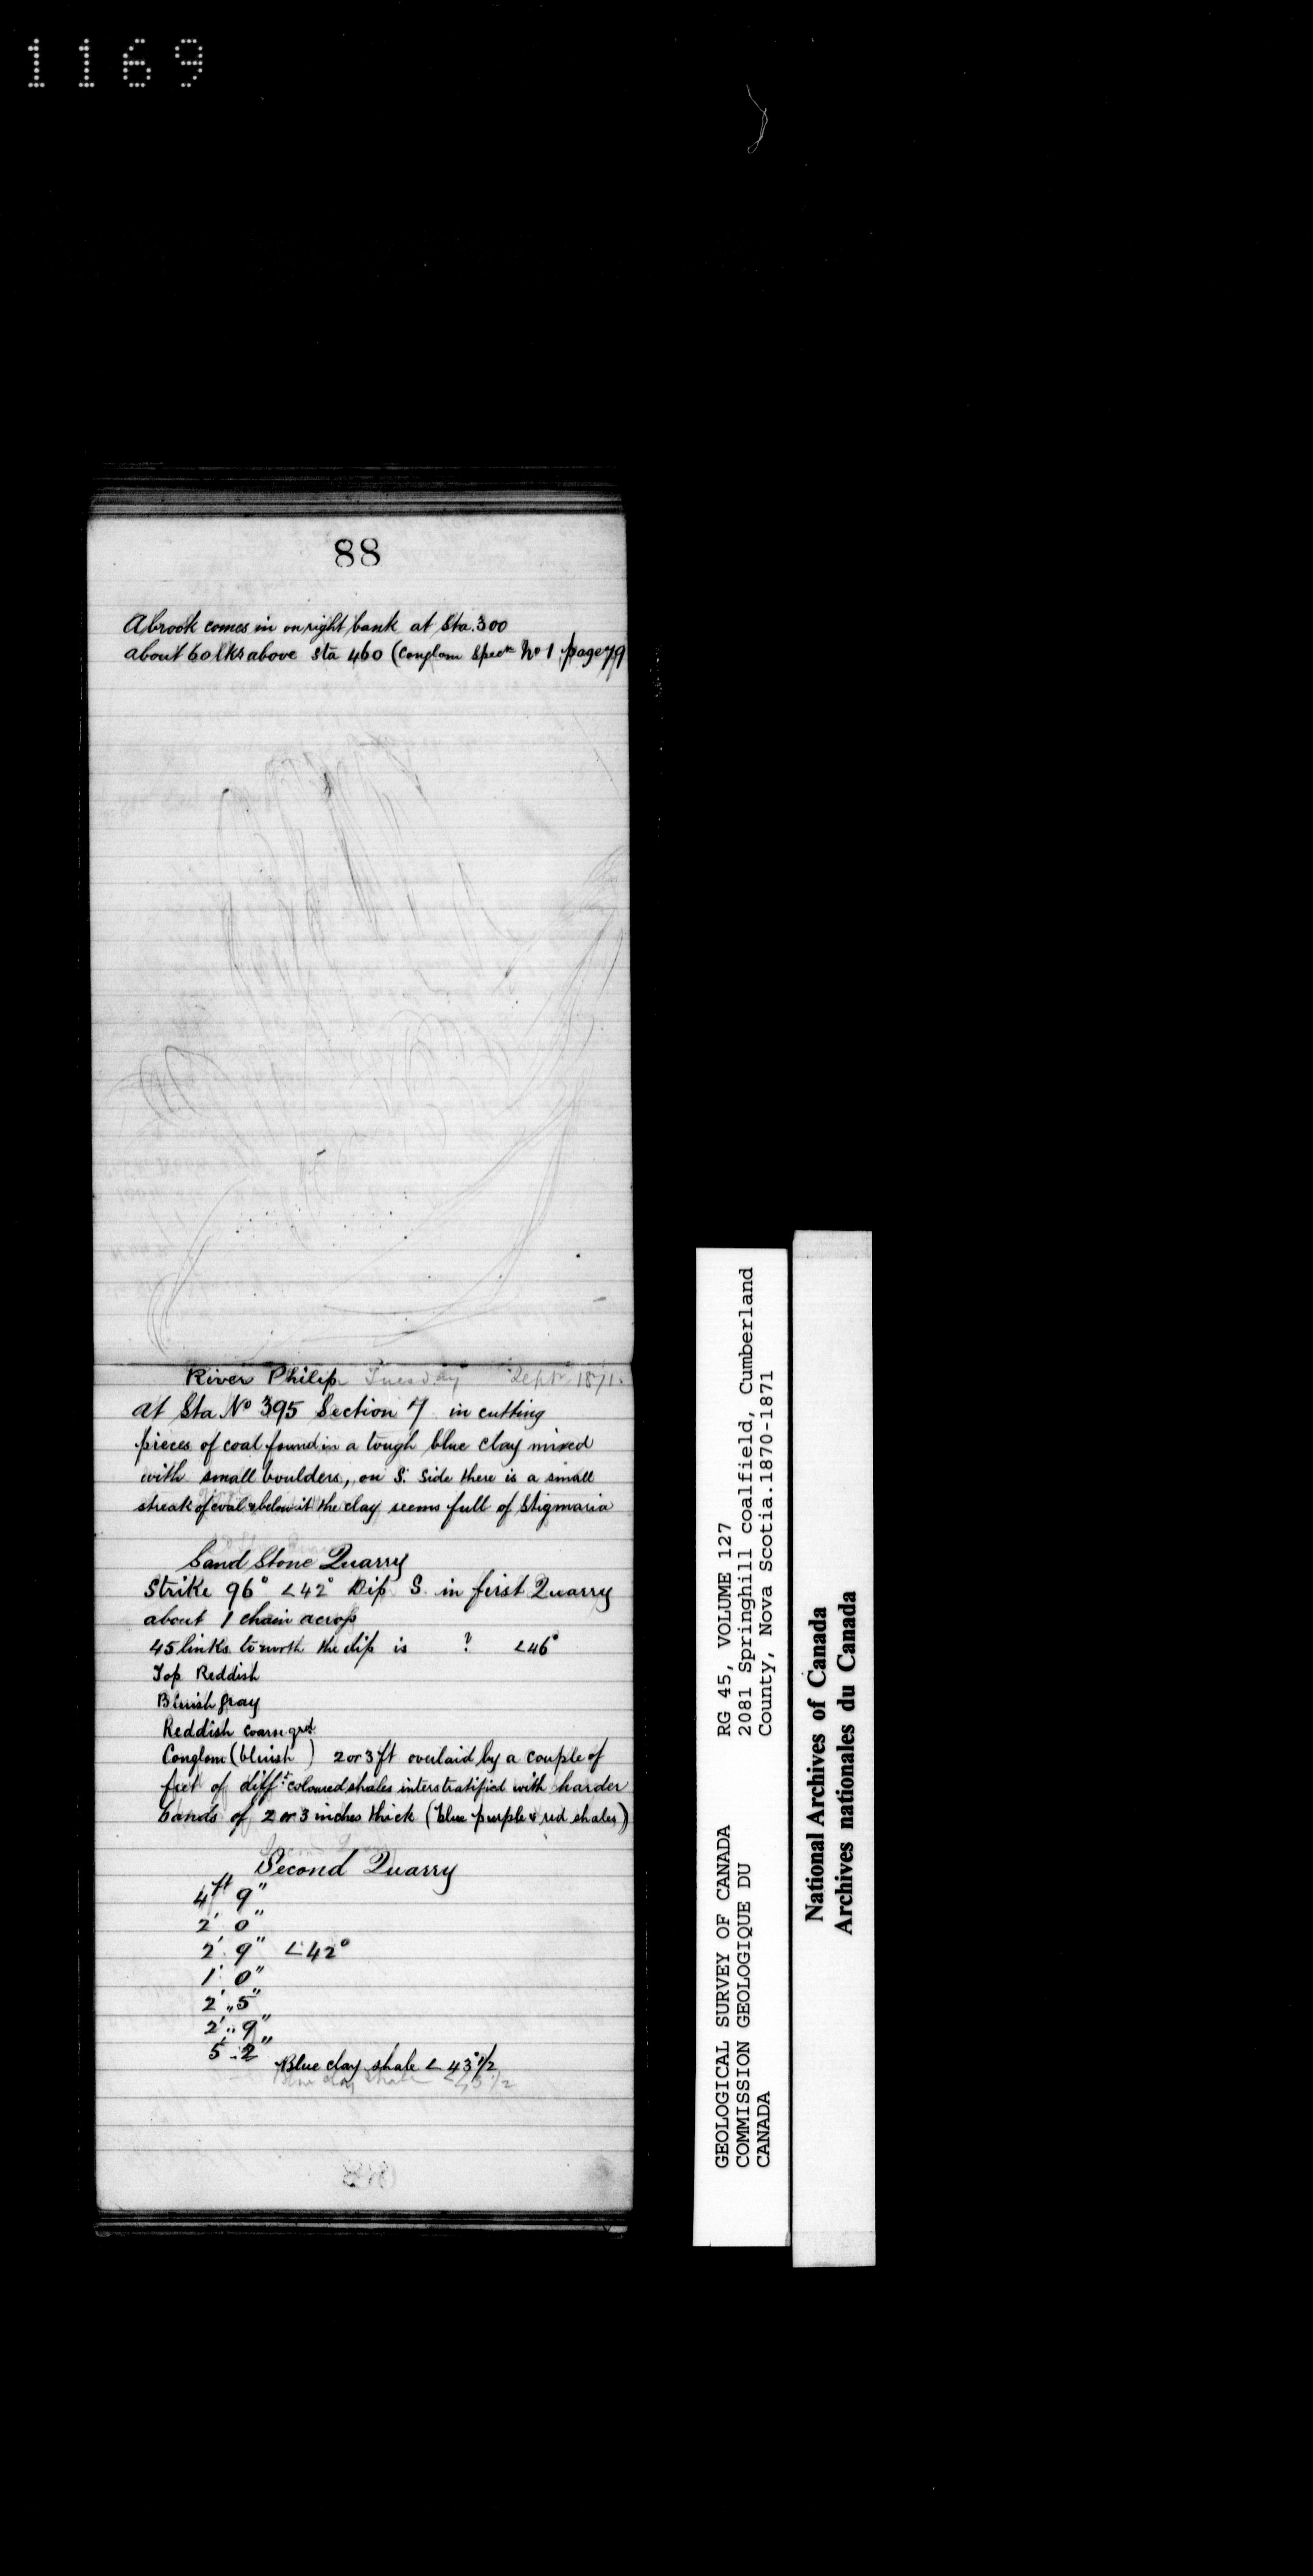 1169
88
A brook comes in on right bank at Sta. 300
about 60 lks above Sta 460 (Conglom Specn No 1 page 79
River Philip Tuesday Septr 1871.
At Sta No 395 Section 7 in cutting
pieces of coal found in a tough blue clay mixed
with small boulders, on S. Side there is a small
streak of coal & below it the clay seems full of Stigmaria
Sand Stone Quarry
Strike 96° ∠42° Dip S. in first Quarry
about 1 chain across
45 links to north the dip is ? ∠46°
Top Reddish
Bluish gray
Reddish coarse grd
Conglom (bluish ) 2 or 3 ft overlaid by a couple of
feet of difft coloured shales interstratified with harder
bands of 2 or 3 inches thick (blue purple & red shales)
Second Quarry
4ft 9"
2' 0"
2' 9" ∠42°
1' 0"
2' 5"
2' 9"
5' 2"
Blue clay shale ∠ 43° 1/2
Blue clay shale ∠43 1/2
GEOLOGICAL SURVEY OF CANADA
COMMISSION GEOLOGIQUE DU
CANADA
RG 45, VOLUME 127
2081 Springhill coalfield, Cumberland
County, Nova Scotia.1870-1871
National Archives of Canada
Archives nationales du Canada